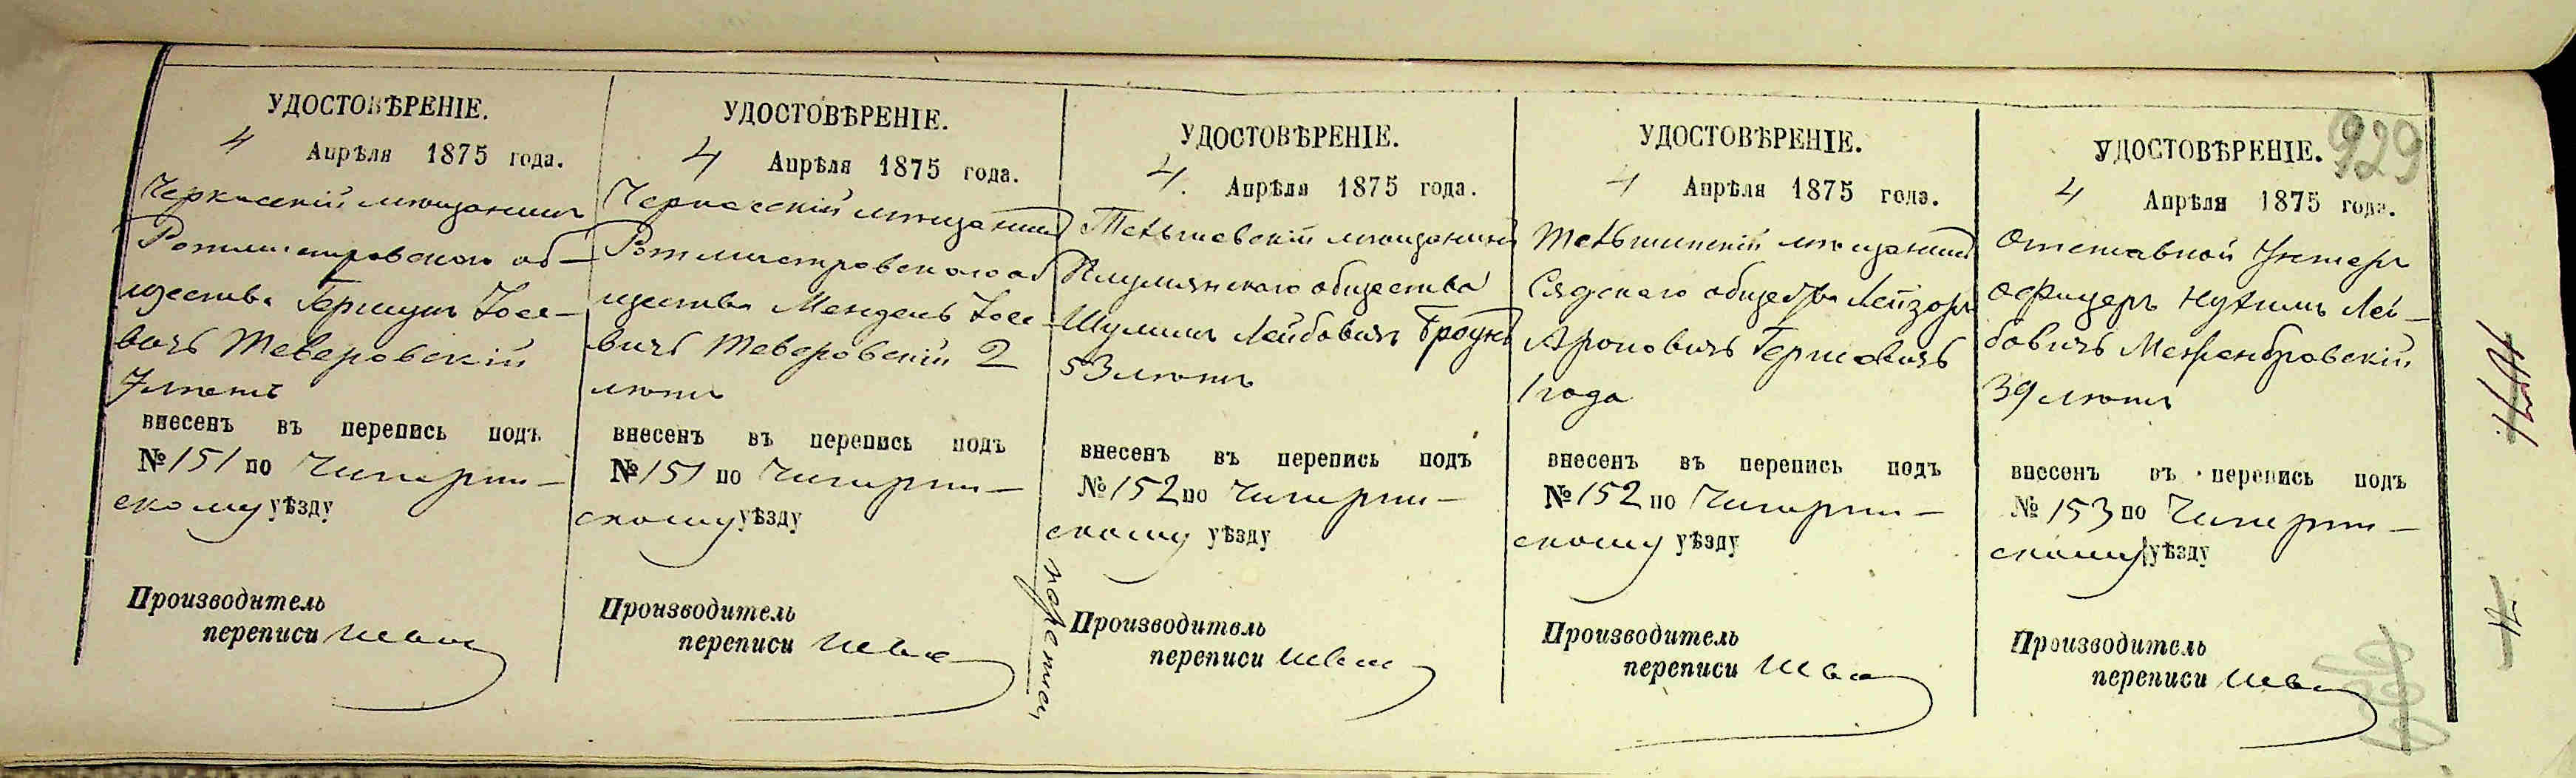 929
УДОСТОВѢРЕНІЕ.
4 Апрѣля 1875 года.
Черкасскій мѣщанинъ
Ротмистровского об-
щества Гершунъ Іосе-
вичъ Тверовскій
7 летъ
внесенъ въ перепись подъ
№ 151 по Чигирин-
скому уѣзду
Производитель
переписи
УДОСТОВѢРЕНІЕ.
4 Апрѣля 1875 года.
Черкасскій мѣщанинъ
Ротмистровского об
щества Мендель Іосе-
вичъ Теверовскій 2
лѣтъ
внесенъ въ перепись подъ
№ 151 по Чигирин-
скому уѣзду
Производитель
переписи
УДОСТОВѢРЕНІЕ.
4. Апрѣля 1875 года.
Тельшевскій мѣщанинъ
Плумянского общества
Шулимъ Лейбовичъ Броунъ
53 лѣтъ
внесенъ въ перепись подъ
№ 152 по Чигирин-
скому уѣзду
Производитель
переписи
УДОСТОВѢРЕНІЕ.
4 Апрѣля 1875 года.
мѣщанинъ
Сядского общества Лейзоръ
Ароновичъ Гершовичъ
1 года
внесенъ въ перепись подъ
№ 152 по Чигирин-
скому уѣзду
Производитель
переписи
УДОСТОВѢРЕНІЕ.
4 Апрѣля 1875 года.
Отставной Унтеръ
офицеръ Нухимъ Лей-
бовичъ
39 лѣтъ
внесенъ въ перепись подъ
№ 153 по Чигирин-
скому уѣзду
Производитель
переписи